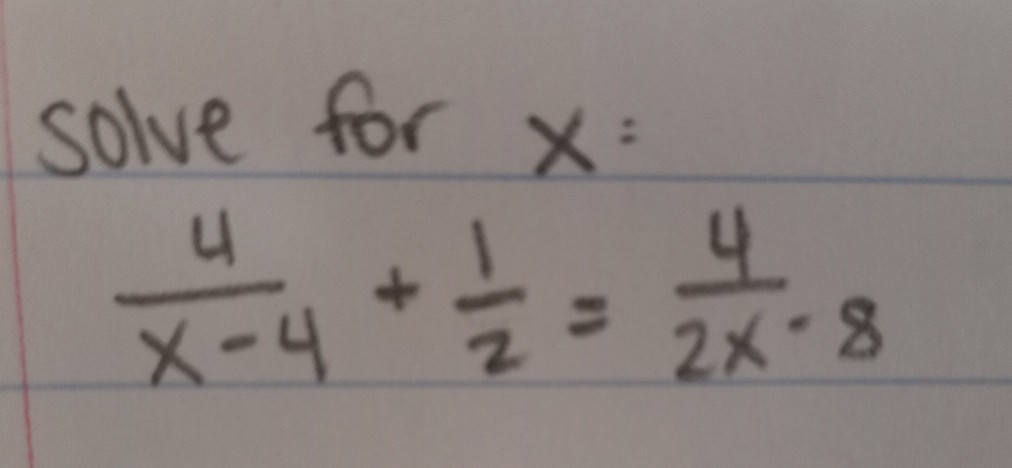 solve for x:
4/(x-4) + 1/2 = 4/(2x-8)